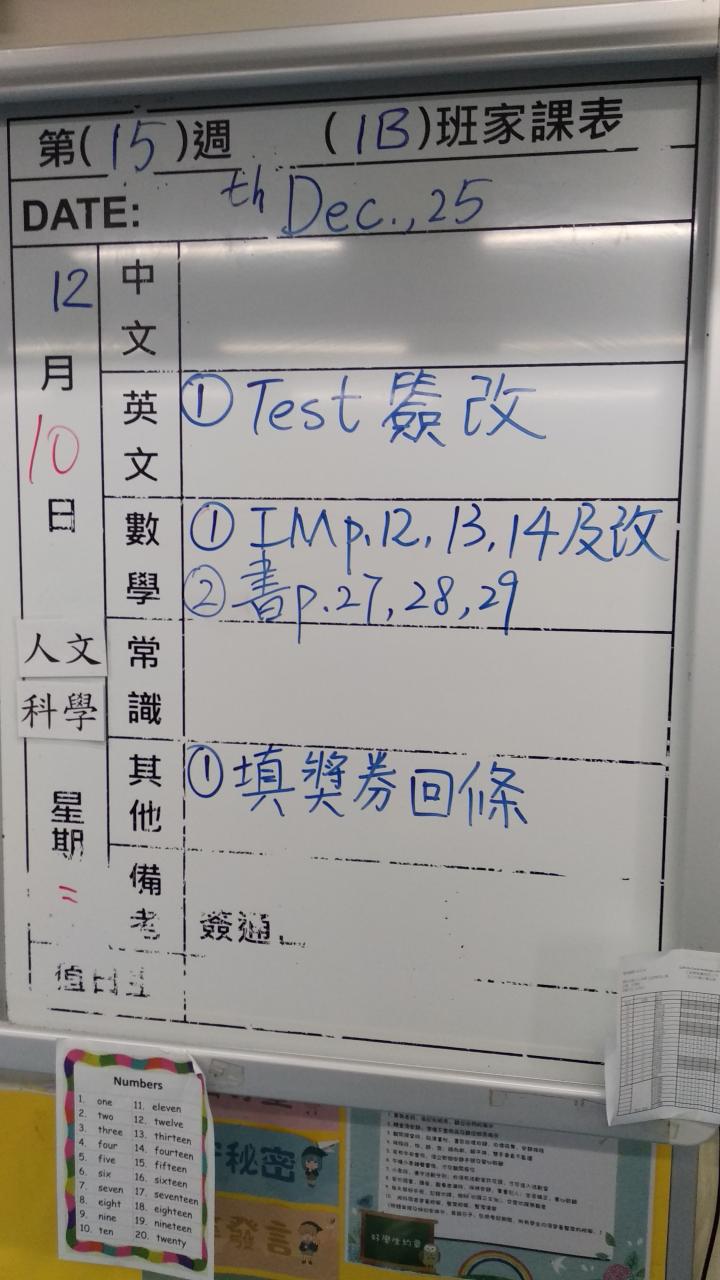 第(15)週 (1B)班家課表
DATE: th Dec.,25
12
月
10
日
人文
科學
星期
二
中文
英文
①Test 簽改
數學
①IMp.12,13,14及改
②書p.27,28,29
常識
其他
①填獎券回條
備考
簽通
值日生
Numbers
1. one
2. two
3. three
4. four
5. five
6. six
7. seven
8. eight
9. nine
10. ten
11. eleven
12. twelve
13. thirteen
14. fourteen
15. fifteen
16. sixteen
17. seventeen
18. eighteen
19. nineteen
20. twenty
秘密
發言
好學生約章